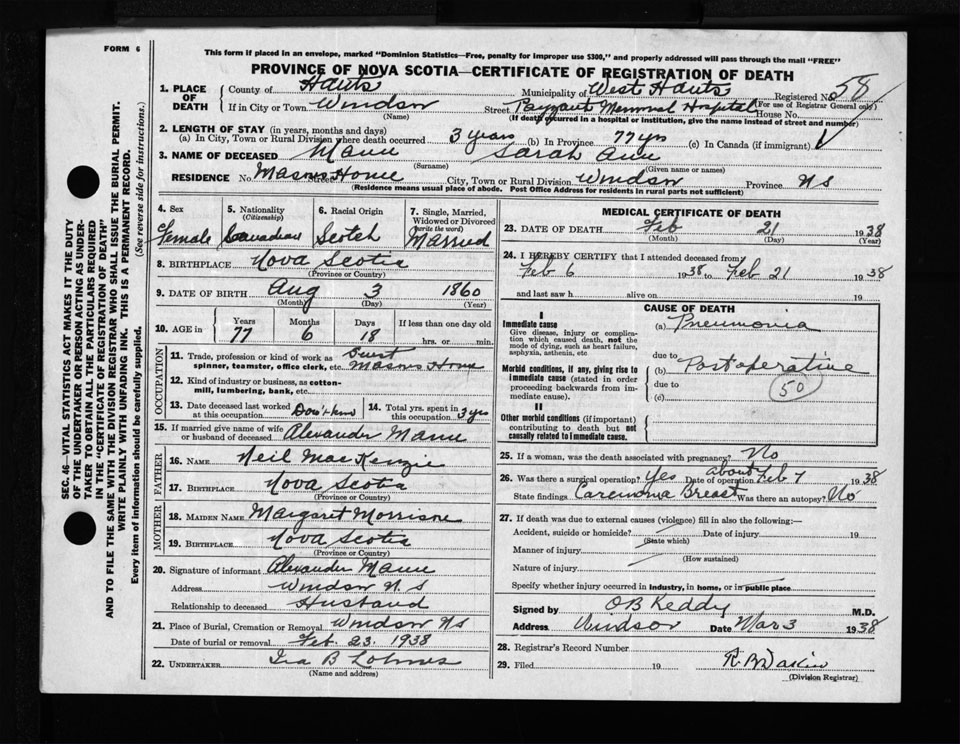 FORM 6
This form if placed in an envelope, marked "Dominion Statistics—Free, penalty for improper use $300," and properly addressed will pass through the mail "FREE"
PROVINCE OF NOVA SCOTIA—CERTIFICATE OF REGISTRATION OF DEATH
1. PLACE OF DEATH
County of Hants Municipality of West Hants Registered No. 58
(For use of Registrar General only)
If in City or Town Windsor Street Payzant Memorial Hospital House No.
(Name) (If death occurred in a hospital or institution, give the name instead of street and number)
2. LENGTH OF STAY (in years, months and days)
(a) In City, Town or Rural Division where death occurred 3 years (b) In Province 77 yrs (c) In Canada (if immigrant)
3. NAME OF DECEASED Mann Sarah Ann
(Surname) (Given name or names)
RESIDENCE No. Street Masons Home City, Town or Rural Division Windsor Province NS
(Residence means usual place of abode. Post Office Address for residents in rural parts not sufficient)
SEC. 46—VITAL STATISTICS ACT MAKES IT THE DUTY
OF THE UNDERTAKER OR PERSON ACTING AS UNDER-
TAKER TO OBTAIN ALL THE PARTICULARS REQUIRED
IN THE "CERTIFICATE OF REGISTRATION OF DEATH"
AND TO FILE THE SAME WITH THE DIVISION REGISTRAR WHO SHALL ISSUE THE BURIAL PERMIT.
WRITE PLAINLY WITH UNFADING INK. THIS IS A PERMANENT RECORD.
Every item of information should be carefully supplied. (See reverse side for instructions.)
4. Sex Female
5. Nationality (Citizenship) Canadian
6. Racial Origin Scotch
7. Single, Married, Widowed or Divorced (write the word) Married
8. BIRTHPLACE Nova Scotia
(Province or Country)
9. DATE OF BIRTH Aug 3 1860
(Month) (Day) (Year)
10. AGE in Years 77 Months 6 Days 18 If less than one day old hrs. or min.
OCCUPATION
11. Trade, profession or kind of work as spinner, teamster, office clerk, etc. Guest Masons Home
12. Kind of industry or business, as cotton-mill, lumbering, bank, etc.
13. Date deceased last worked at this occupation Don't know
14. Total yrs. spent in this occupation 3 yrs
15. If married give name of wife or husband of deceased Alexander Mann
FATHER
16. NAME Neil MacKenzie
17. BIRTHPLACE Nova Scotia
(Province or Country)
MOTHER
18. MAIDEN NAME Margaret Morrison
19. BIRTHPLACE Nova Scotia
(Province or Country)
20. Signature of informant Alexander Mann
Address Windsor N S
Relationship to deceased Husband
21. Place of Burial, Cremation or Removal Windsor NS
Date of burial or removal Feb. 23. 1938
22. UNDERTAKER Ira B
(Name and address)
MEDICAL CERTIFICATE OF DEATH
23. DATE OF DEATH Feb 21 1938
(Month) (Day) (Year)
24. I HEREBY CERTIFY that I attended deceased from
Feb 6 1938 to Feb 21 1938
and last saw h alive on 19
CAUSE OF DEATH
I
Immediate cause
Give disease, injury or complication which caused death, not the mode of dying, such as heart failure, asphyxia, asthenia, etc
(a) Pneumonia
due to
Morbid conditions, if any, giving rise to Immediate cause (stated in order proceeding backwards from immediate cause).
(b) Postoperative
due to
(c)
50
II
Other morbid conditions (if important) contributing to death but not causally related to Immediate cause.
25. If a woman, was the death associated with pregnancy? No
26. Was there a surgical operation? Yes Date of operation about Feb 7 1938
State findings Carcinoma Breast Was there an autopsy? No
27. If death was due to external causes (violence) fill in also the following:—
Accident, suicide or homicide? Date of injury 19
(State which)
Manner of injury
(How sustained)
Nature of injury
Specify whether injury occurred in industry, in home, or in public place
Signed by O B Keddy M.D.
Address Windsor Date Mar 3 1938
28. Registrar's Record Number
29. Filed 19 R. B. Dakin
(Division Registrar)